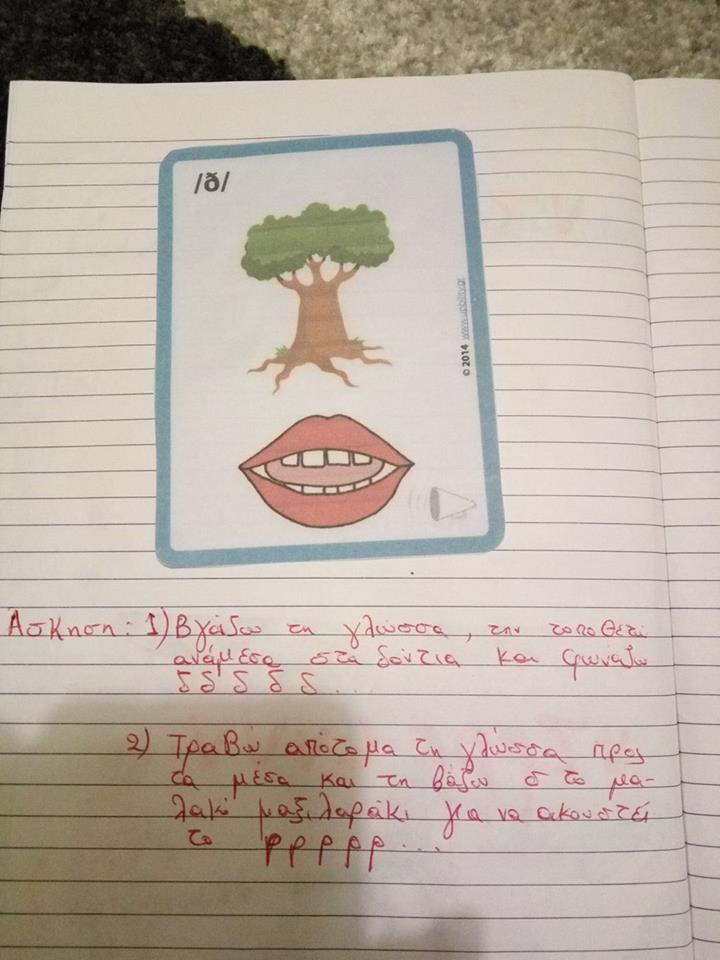 /ð/
© 2014 www.upbility.gr
Άσκηση: 1) Βγάζω τη γλώσσα, την τοποθετώ
ανάμεσα στα δόντια και φωνάζω
δ δ δ δ δ ...
2) Τραβώ απότομα τη γλώσσα προς
τα μέσα και τη βάζω στο μα-
λακό μαξιλαράκι για να ακουστεί
το ρ ρ ρ ρ ρ ...